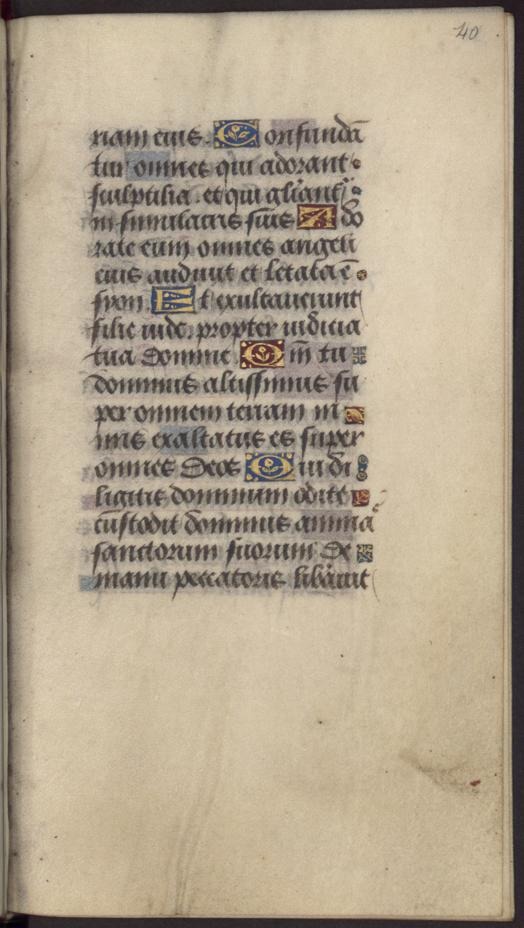 40
riam eius. Confundã
tur omnes qui adorant
sculptilia. et qui gl̃iant̃
in simulacris suis Ado
rate eum omnes angeli
eius audiuit et letata ẽ
syon. Et exultauerunt
filie iude. propter iudicia
tua domine. Qm̃ tu
dominus altissimus su
per omnem terram ni
mis exaltatus es super
omnes deos Qui di
ligitis dominum odite
custodit dominus animã
sanctorum suorum de
manu peccatoris lib̃auit